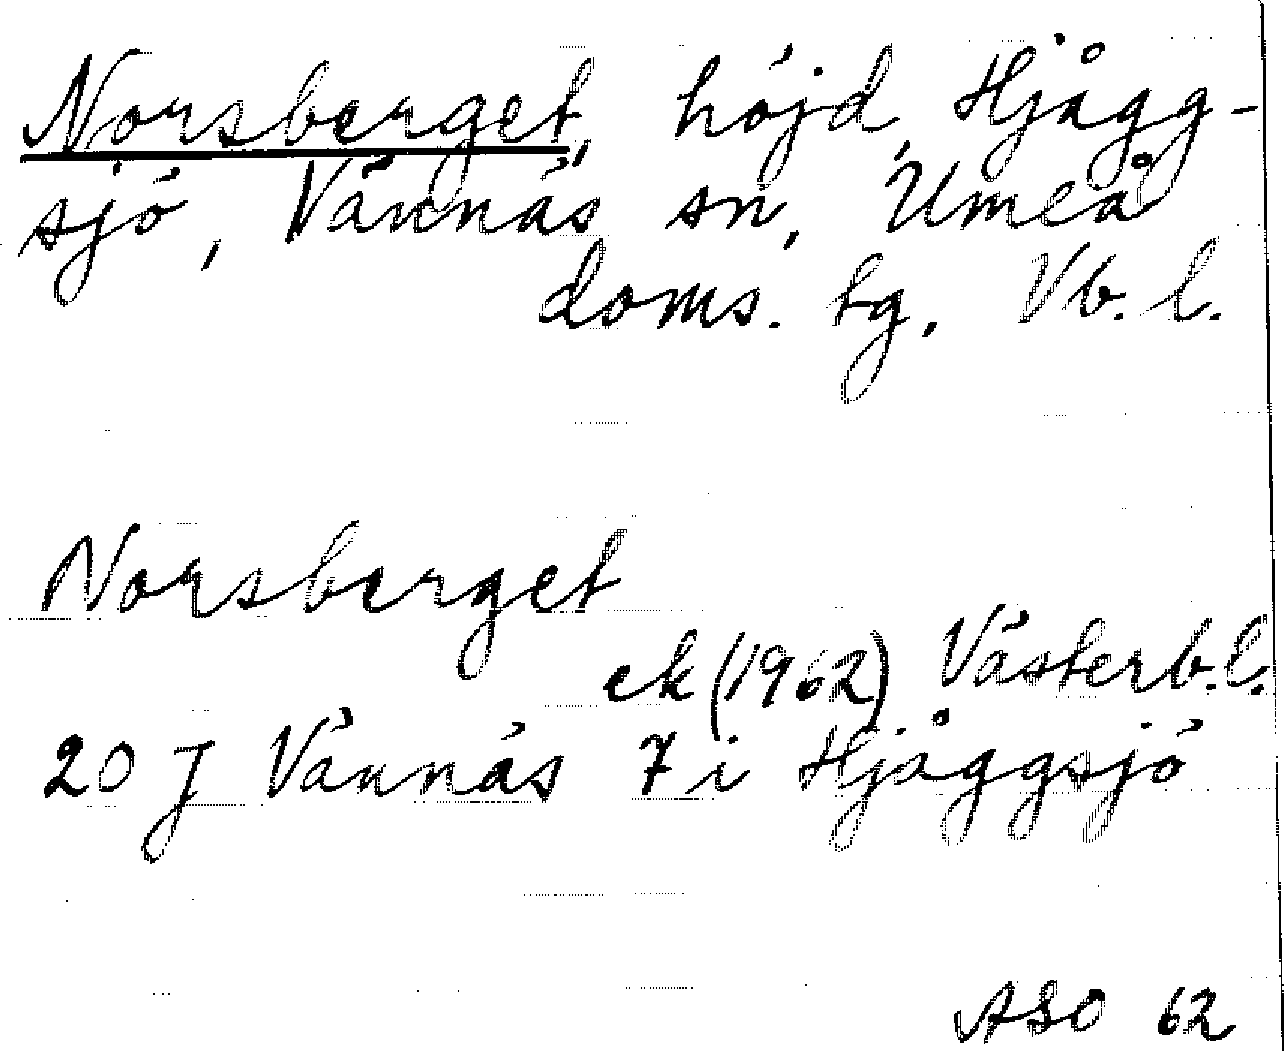 Norsberget, höjd, Hjågg-
sjö, Vännäs sn, Umeå
doms. tg, Vb. l.
Norsberget
ek (1962) Västerb. l.
20 J Vännäs 7 i Hjåggsjö
ASO 62